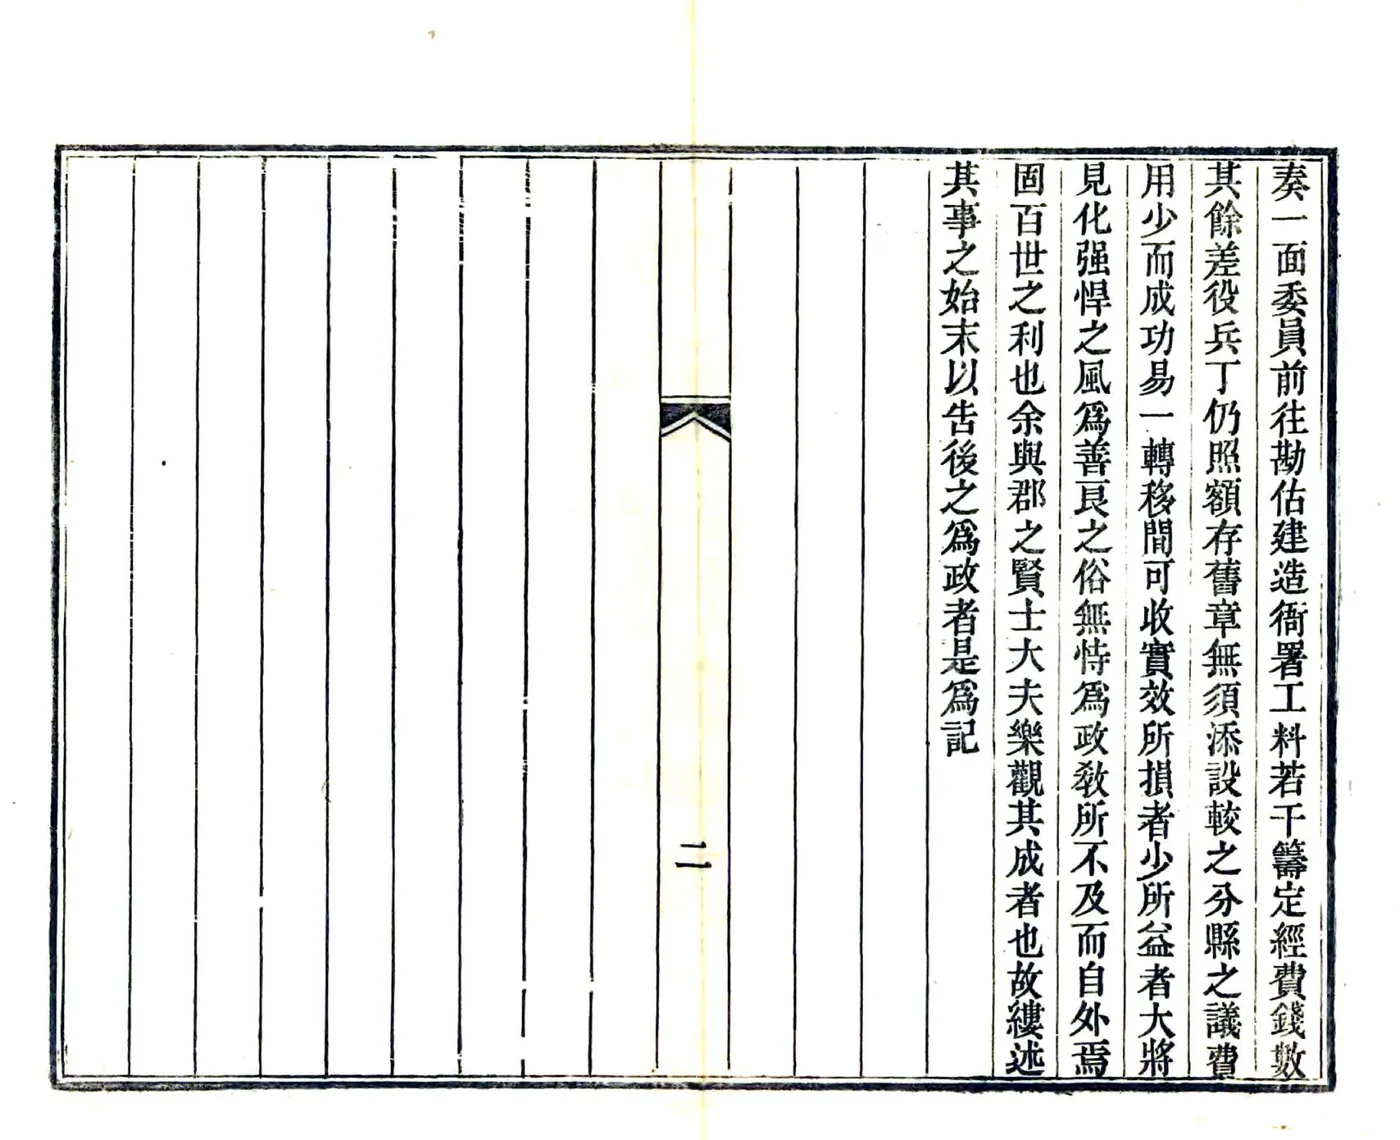 奏一面委員前往勘估建造衙署工料若干籌定經費錢數
其餘差役兵丁仍照額存舊章無須添設較之分縣之議費
用少而成功易一轉移間可收實效所損者少所益者大將
見化强悍之風爲善良之俗無恃爲政敎所不及而自外焉
固百世之利也余與郡之賢士大夫樂觀其成者也故縷述
其事之始末以吿後之爲政者是爲記
二